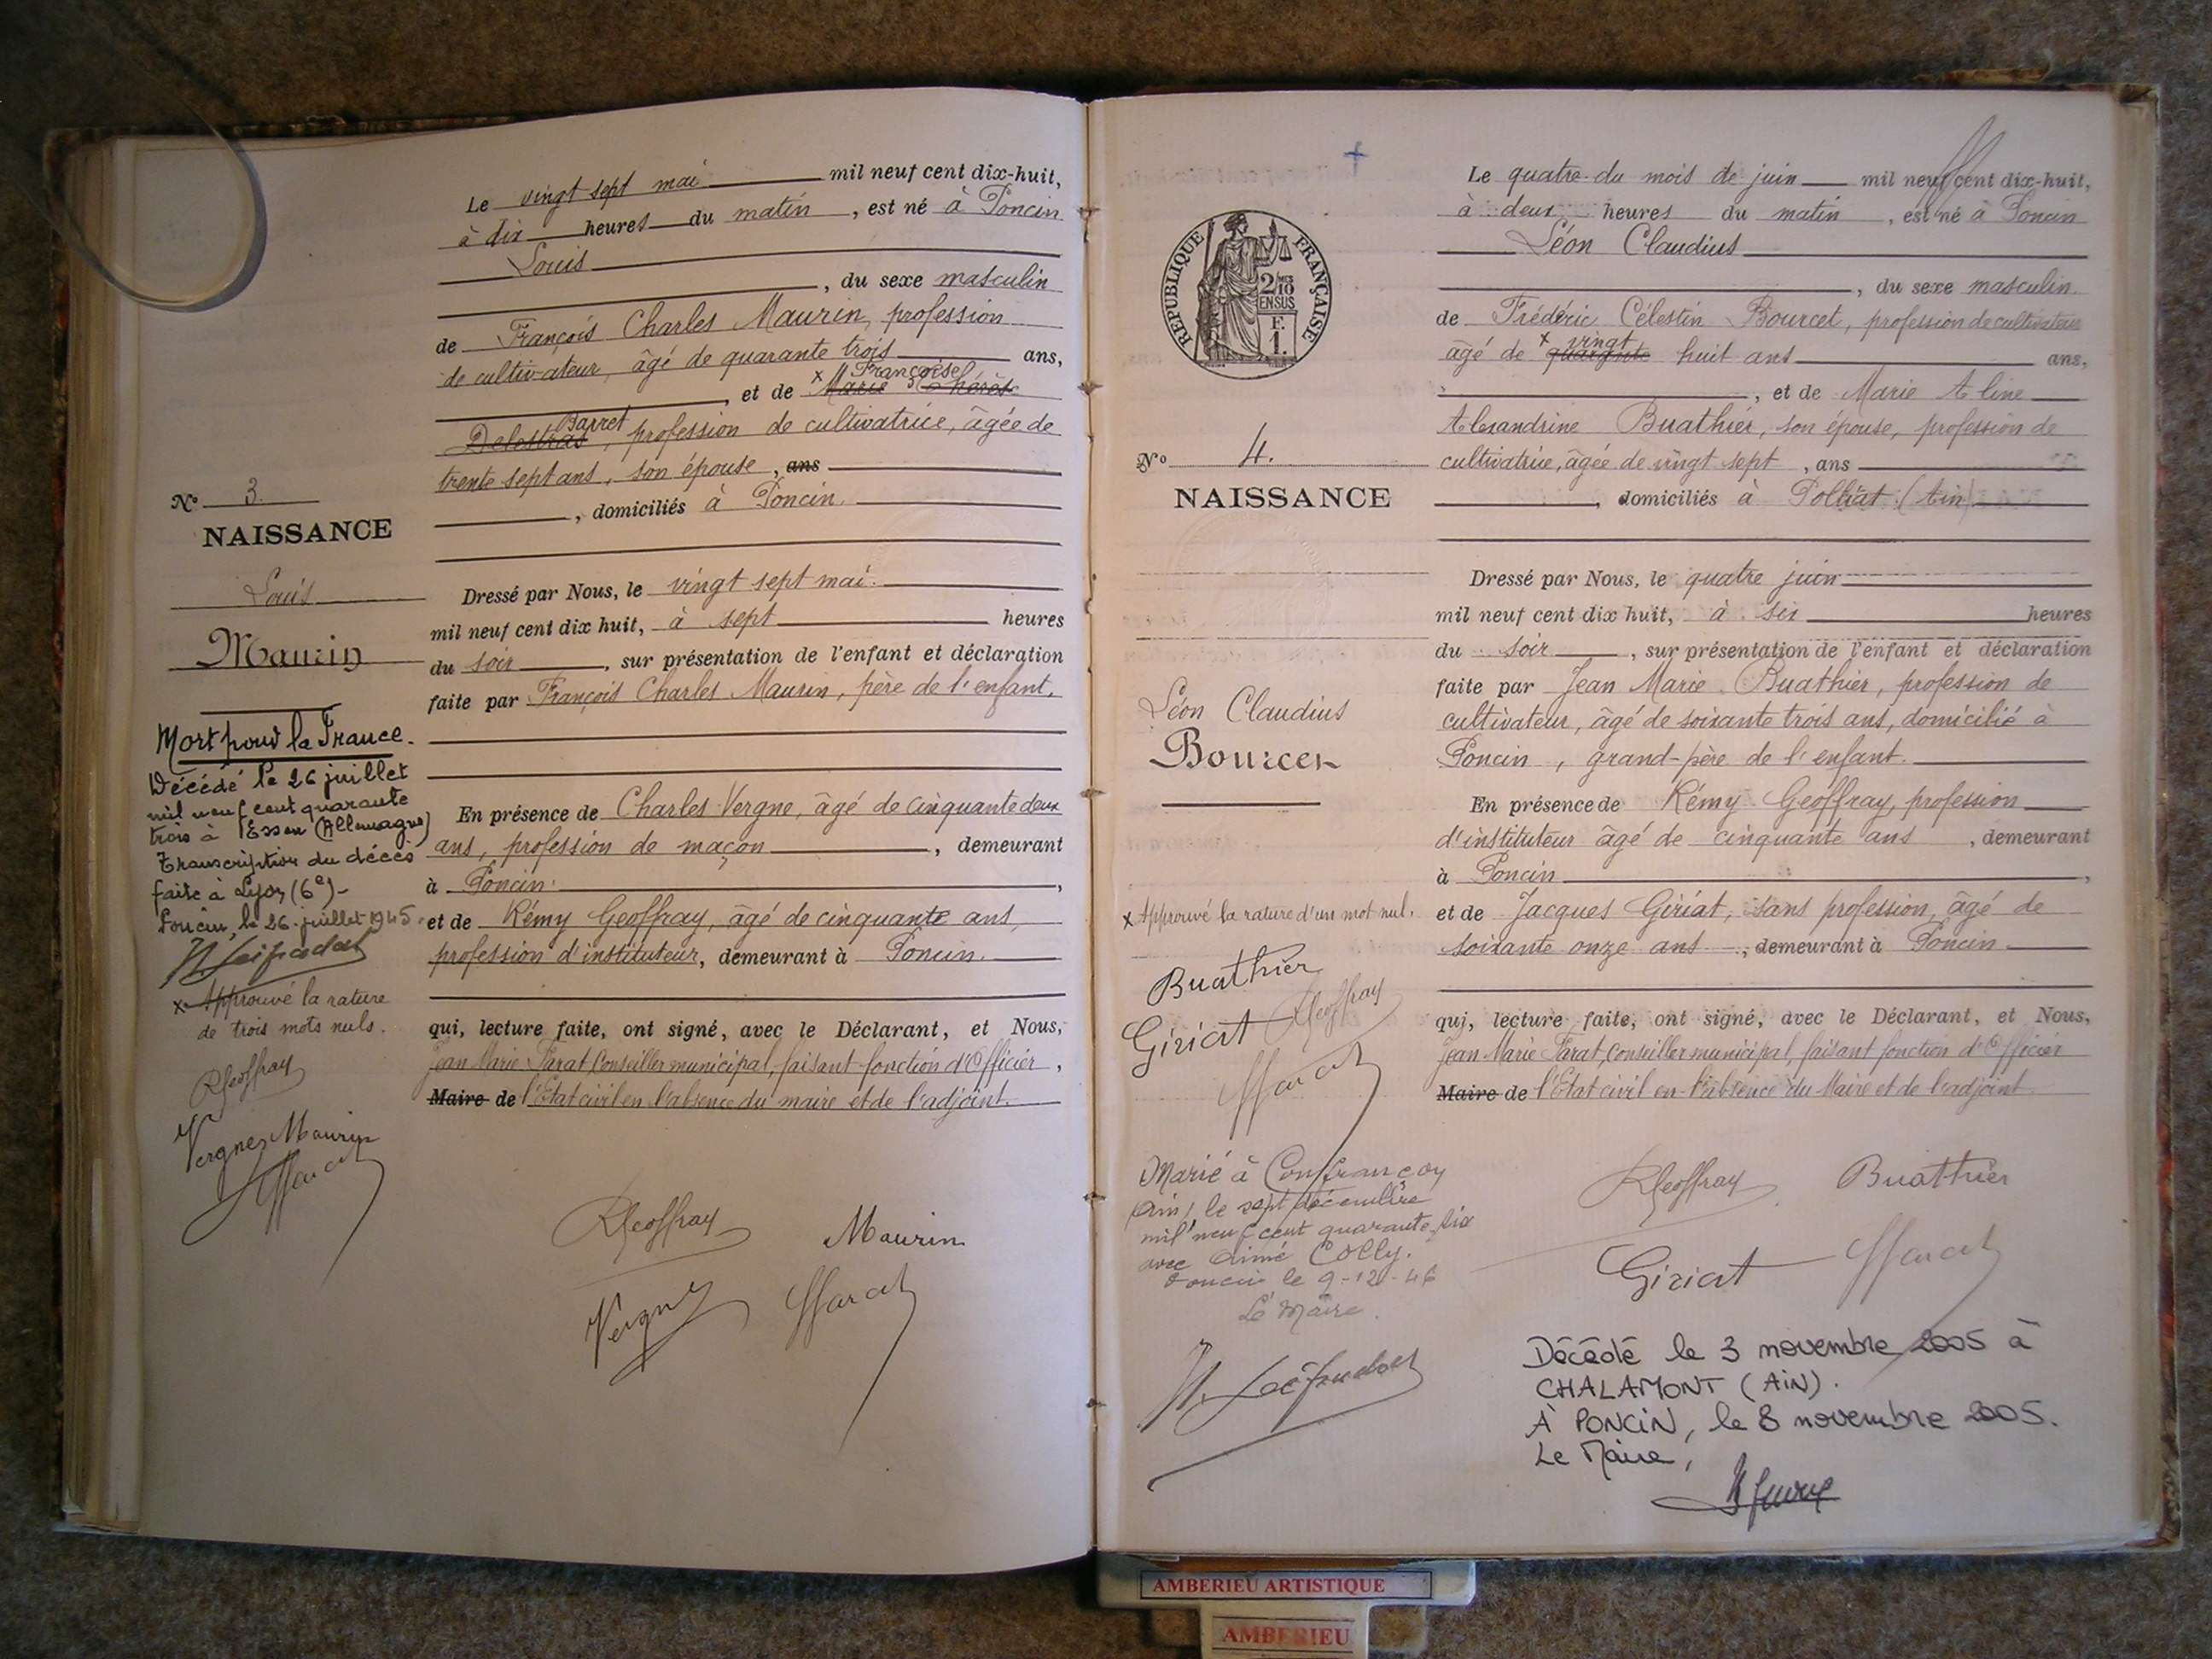 Le vingt sept mai mil neuf cent dix-huit,
à dix heures du matin, est né à Poncin
Louis
, du sexe masculin
de François Charles Maurin, profession
de cultivateur, âgé de quarante trois ans,
Françoise
, et de x Marie Thérèse
Barret
Delestras, profession de cultivatrice, âgée de
trente sept ans, son épouse, ans
, domiciliés à Poncin.
Dressé par Nous, le vingt sept mai.
mil neuf cent dix huit, à sept heures
du soir, sur présentation de l'enfant et déclaration
faite par François Charles Maurin, père de l'enfant.
En présence de Charles Vergne, âgé de cinquante deux
ans, profession de maçon, demeurant
à Poncin,
et de Rémy Geoffray, âgé de cinquante ans,
profession d'instituteur, demeurant à Poncin.
qui, lecture faite, ont signé, avec le Déclarant, et Nous,
Jean Marie Parat, Conseiller municipal, faisant fonction d'Officier,
Maire de l'Etat civil en l'absence du maire et de l'adjoint.
RGeoffray Maurin
Vergne Parat
No 3.
NAISSANCE
Louis
Maurin
Mort pour la France.
Décédé le 26 juillet
mil neuf cent quarante
trois à Essen (Allemagne)
Transcription du décès
faite à Lyon (6e) -
Poncin, le 26 juillet 1945.
x Approuvé la rature
de trois mots nuls.
RGeoffray
Vergne Maurin
Parat
REPUBLIQUE FRANÇAISE
2/10 MES
EN SUS
F.
1.
No 4.
NAISSANCE
Léon Claudius
Bourcet
x Approuvé la rature d'un mot nul.
Buathier
Giriat RGeoffray
Parat
Marié à Confrançon
(Ain) le sept décembre
mil neuf cent quarante six
avec Aimé Colly.
Poncin le 9-12-46
Le Maire.
Le quatre du mois de juin mil neuf cent dix-huit,
à deux heures du matin, est né à Poncin
Léon Claudius
, du sexe masculin
de Frédéric Célestin Bourcet, profession de cultivateur
vingt
âgé de x quarante huit ans ans,
, et de Marie Aline
Alexandrine Buathier, son épouse, profession de
cultivatrice, âgée de vingt sept, ans
, domiciliés à Polliat (Ain)
Dressé par Nous, le quatre juin
mil neuf cent dix huit, à six heures
du soir, sur présentation de l'enfant et déclaration
faite par Jean Marie Buathier, profession de
cultivateur, âgé de soixante trois ans, domicilié à
Poncin, grand-père de l'enfant.
En présence de Rémy Geoffray, profession
d'instituteur âgé de cinquante ans, demeurant
à Poncin,
et de Jacques Giriat, sans profession, âgé de
soixante onze ans, demeurant à Poncin
qui, lecture faite, ont signé, avec le Déclarant, et Nous,
Jean Marie Parat, Conseiller municipal, faisant fonction d'Officier
Maire de l'Etat civil en l'absence du Maire et de l'adjoint
RGeoffray Buathier
Giriat Parat
Décédé le 3 novembre 2005 à
CHALAMONT (AIN).
À PONCIN, le 8 novembre 2005.
Le Maire,
AMBERIEU ARTISTIQUE
AMBERIEU